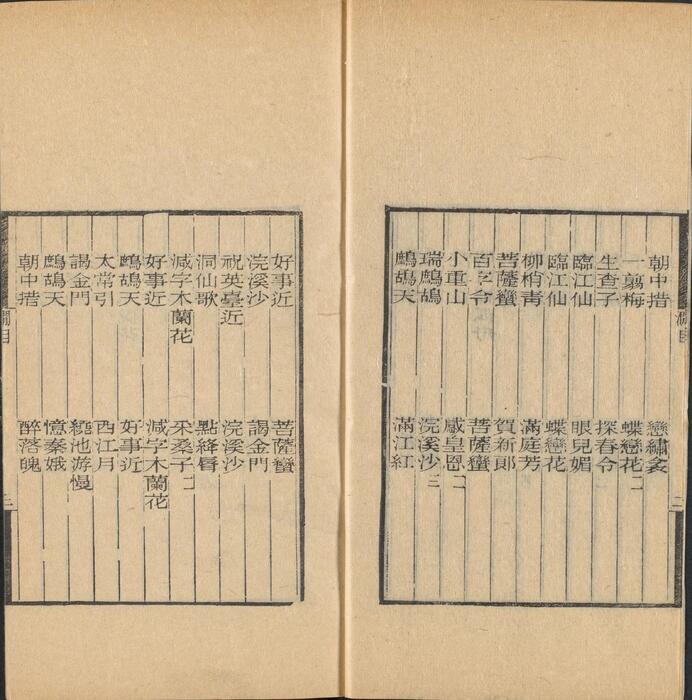 朝中措 戀繡衾
一翦梅 蝶戀花二
生查子 探春令
臨江仙 眼兒媚
臨江仙 蝶戀花
柳梢青 滿庭芳
菩薩蠻 賀新郎
百字令 菩薩蠻
小重山 感皇恩二
瑞鷓鴣 浣溪沙三
鷓鴣天 滿江紅
好事近 菩薩蠻
浣溪沙 謁金門
祝英臺近 浣溪沙
洞仙歌 點絳脣
減字木蘭花 采桑子二
好事近 減字木蘭花
鷓鴣天 好事近
太常引 西江月
謁金門 繞池游慢
鷓鴣天 憶秦娥
朝中措 醉落魄